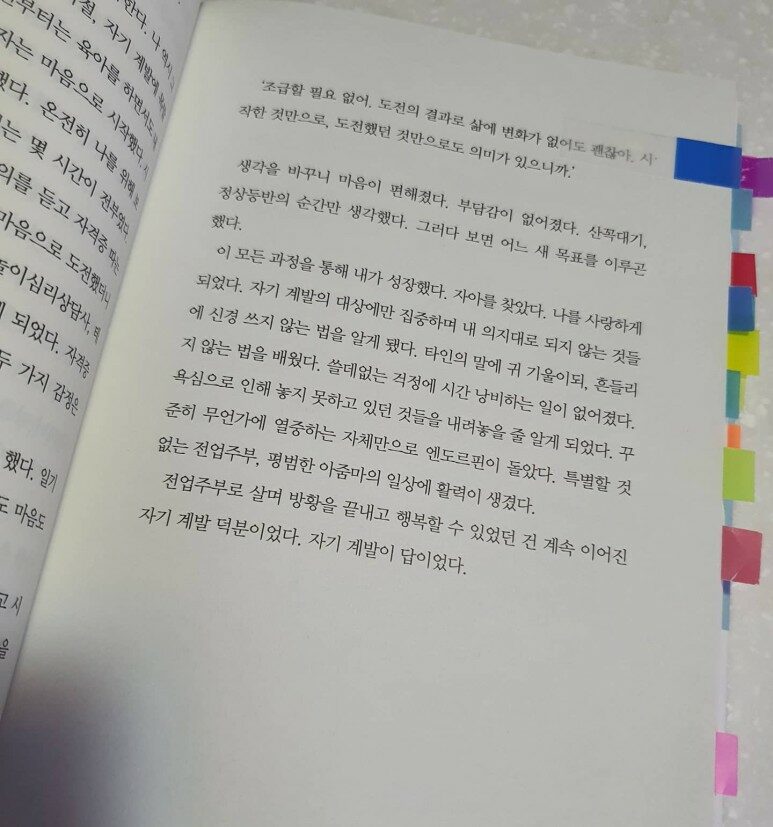 자기 계발에
부터는 육아를 하면서도
자는 마음으로 시작했다.
했다. 온전히 나를 위해
는 몇 시간이 전부였다.
의를 듣고 자격증 따는
마음으로 도전했더니
놀이심리상담사,
되었다. 자격증
두 가지 감정은
했다. 일기
도 마음도
고 시
을
'조급할 필요 없어. 도전의 결과로 삶에 변화가 없어도 괜찮아. 시
작한 것만으로, 도전했던 것만으로도 의미가 있으니까.'
생각을 바꾸니 마음이 편해졌다. 부담감이 없어졌다. 산꼭대기,
정상등반의 순간만 생각했다. 그러다 보면 어느 새 목표를 이루곤
했다.
이 모든 과정을 통해 내가 성장했다. 자아를 찾았다. 나를 사랑하게
되었다. 자기 계발의 대상에만 집중하며 내 의지대로 되지 않는 것들
에 신경 쓰지 않는 법을 알게 됐다. 타인의 말에 귀 기울이되, 흔들리
지 않는 법을 배웠다. 쓸데없는 걱정에 시간 낭비하는 일이 없어졌다.
욕심으로 인해 놓지 못하고 있던 것들을 내려놓을 줄 알게 되었다. 꾸
준히 무언가에 열중하는 자체만으로 엔도르핀이 돌았다. 특별할 것
없는 전업주부, 평범한 아줌마의 일상에 활력이 생겼다.
전업주부로 살며 방황을 끝내고 행복할 수 있었던 건 계속 이어진
자기 계발 덕분이었다. 자기 계발이 답이었다.